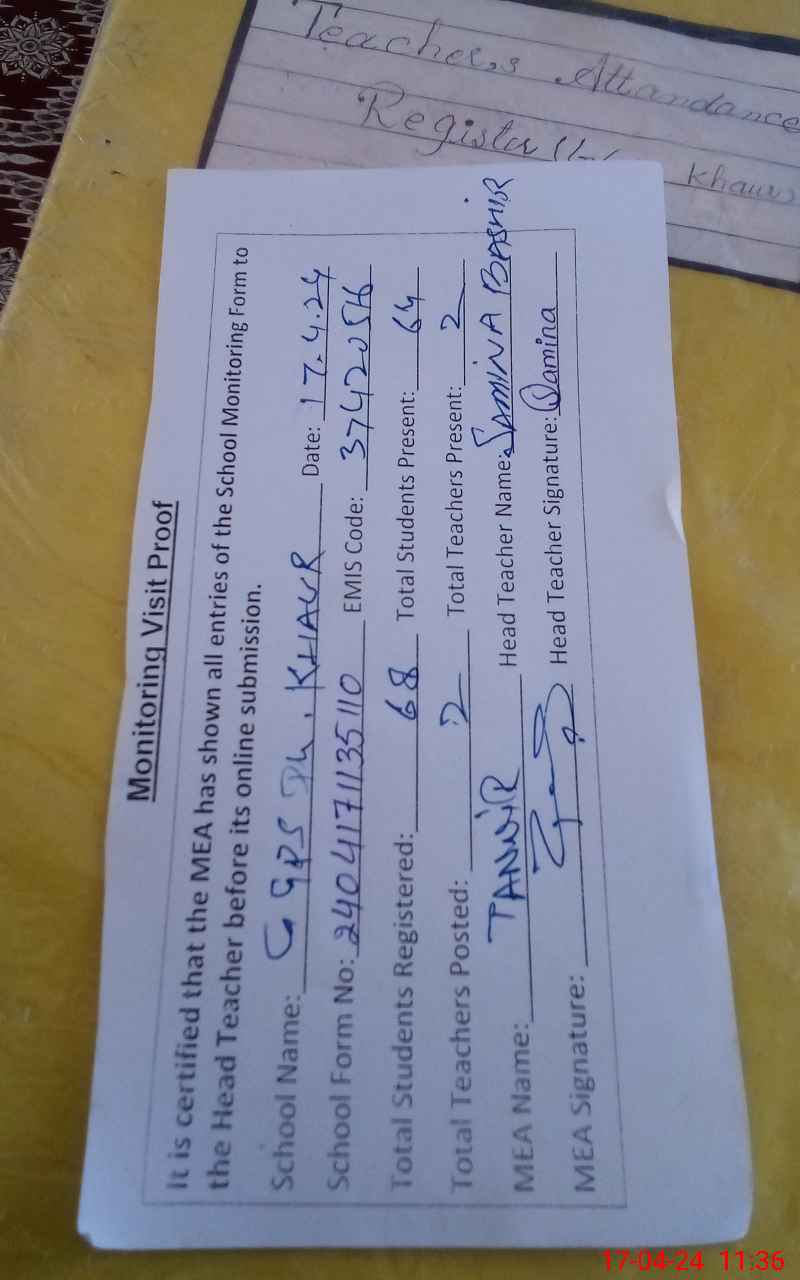 Teachers Attandance
Register
Khaur
Monitoring Visit Proof
It is certified that the MEA has shown all entries of the School Monitoring Form to
the Head Teacher before its online submission.
School Name: GGPS Dh. KHAUR Date: 17.4.24
School Form No: 2404171135110 EMIS Code: 37420516
Total Students Registered: 68 Total Students Present: 64
Total Teachers Posted: 2 Total Teachers Present: 2
MEA Name: TANVIR Head Teacher Name: SAMINA BASHIR
MEA Signature: Head Teacher Signature: Samina
17-04-24 11:36